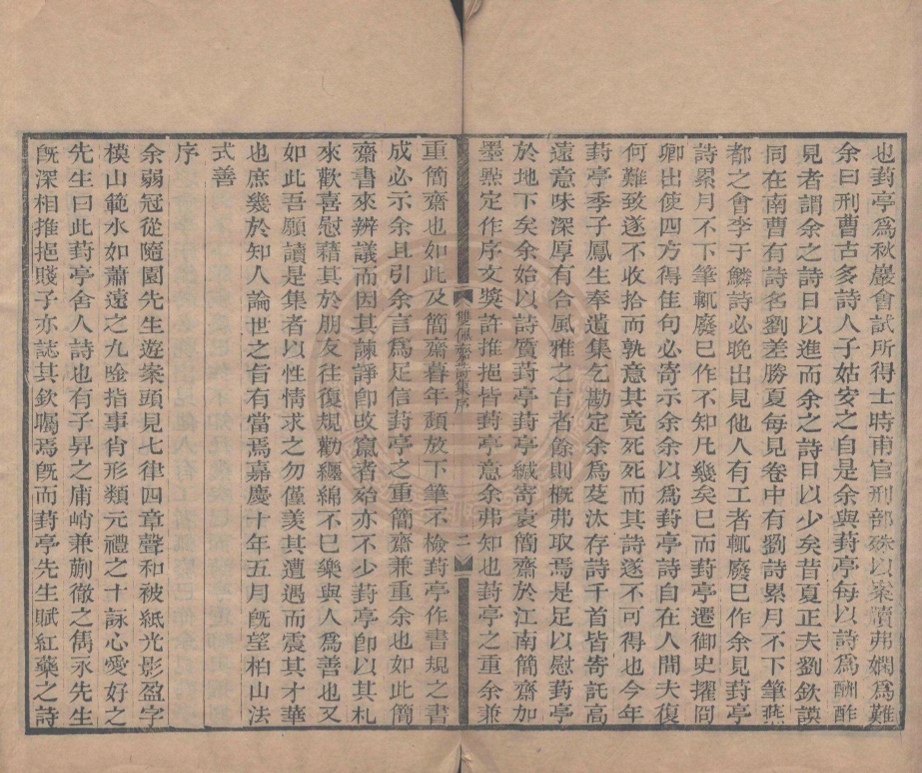 也葑亭爲秋巖會試所得士時甫官刑部殊以案牘弗嫺爲難
余曰刑曹古多詩人子姑安之自是余與葑亭每以詩爲酬酢
見者謂余之詩日以進而余之詩日以少矣昔夏正夫劉欽謨
同在南曹有詩名劉差勝夏每見卷中有劉詩累月不下筆燕
都之會李于鱗詩必晚出見他人有工者輒廢已作余見葑亭
詩累月不下筆輒廢已作不知凡幾矣已而葑亭遷御史擢冏
卿出使四方得佳句必寄示余余以爲葑亭詩自在人間夫復
何難致遂不收拾而孰意其竟死死而其詩遂不可得也今年
葑亭季子鳳生奉遺集乞勘定余爲芟汰存詩千首皆寄託高
遠意味深厚有合風雅之旨者餘則槪弗取焉是足以慰葑亭
於地下矣余始以詩質葑亭葑亭緘寄袁簡齋於江南簡齋加
墨㸃定作序文奬許推挹皆葑亭意余弗知也葑亭之重余兼
雙佩齋詩集序 二
重簡齋也如此及簡齋暮年頽放下筆不檢葑亭作書規之書
成必示余且引余言爲足信葑亭之重簡齋兼重余也如此簡
齋書來辨議而因其諫諍卽改竄者殆亦不少葑亭卽以其札
來歡喜慰藉其於朋友往復規勸纏綿不已樂與人爲善也又
如此吾願讀是集者以性情求之勿僅羨其遭遇而震其才華
也庶幾於知人論世之旨有當焉嘉慶十年五月旣望柏山法
式善
序
余弱冠從隨園先生遊案頭見七律四章聲和被紙光影盈字
模山範水如蕭遠之九唫指事肖形類元禮之十詠心愛好之
先生曰此葑亭舍人詩也有子昇之庯峭兼蒯徹之雋永先生
旣深相推挹賤子亦誌其欽矚焉旣而葑亭先生賦紅藥之詩